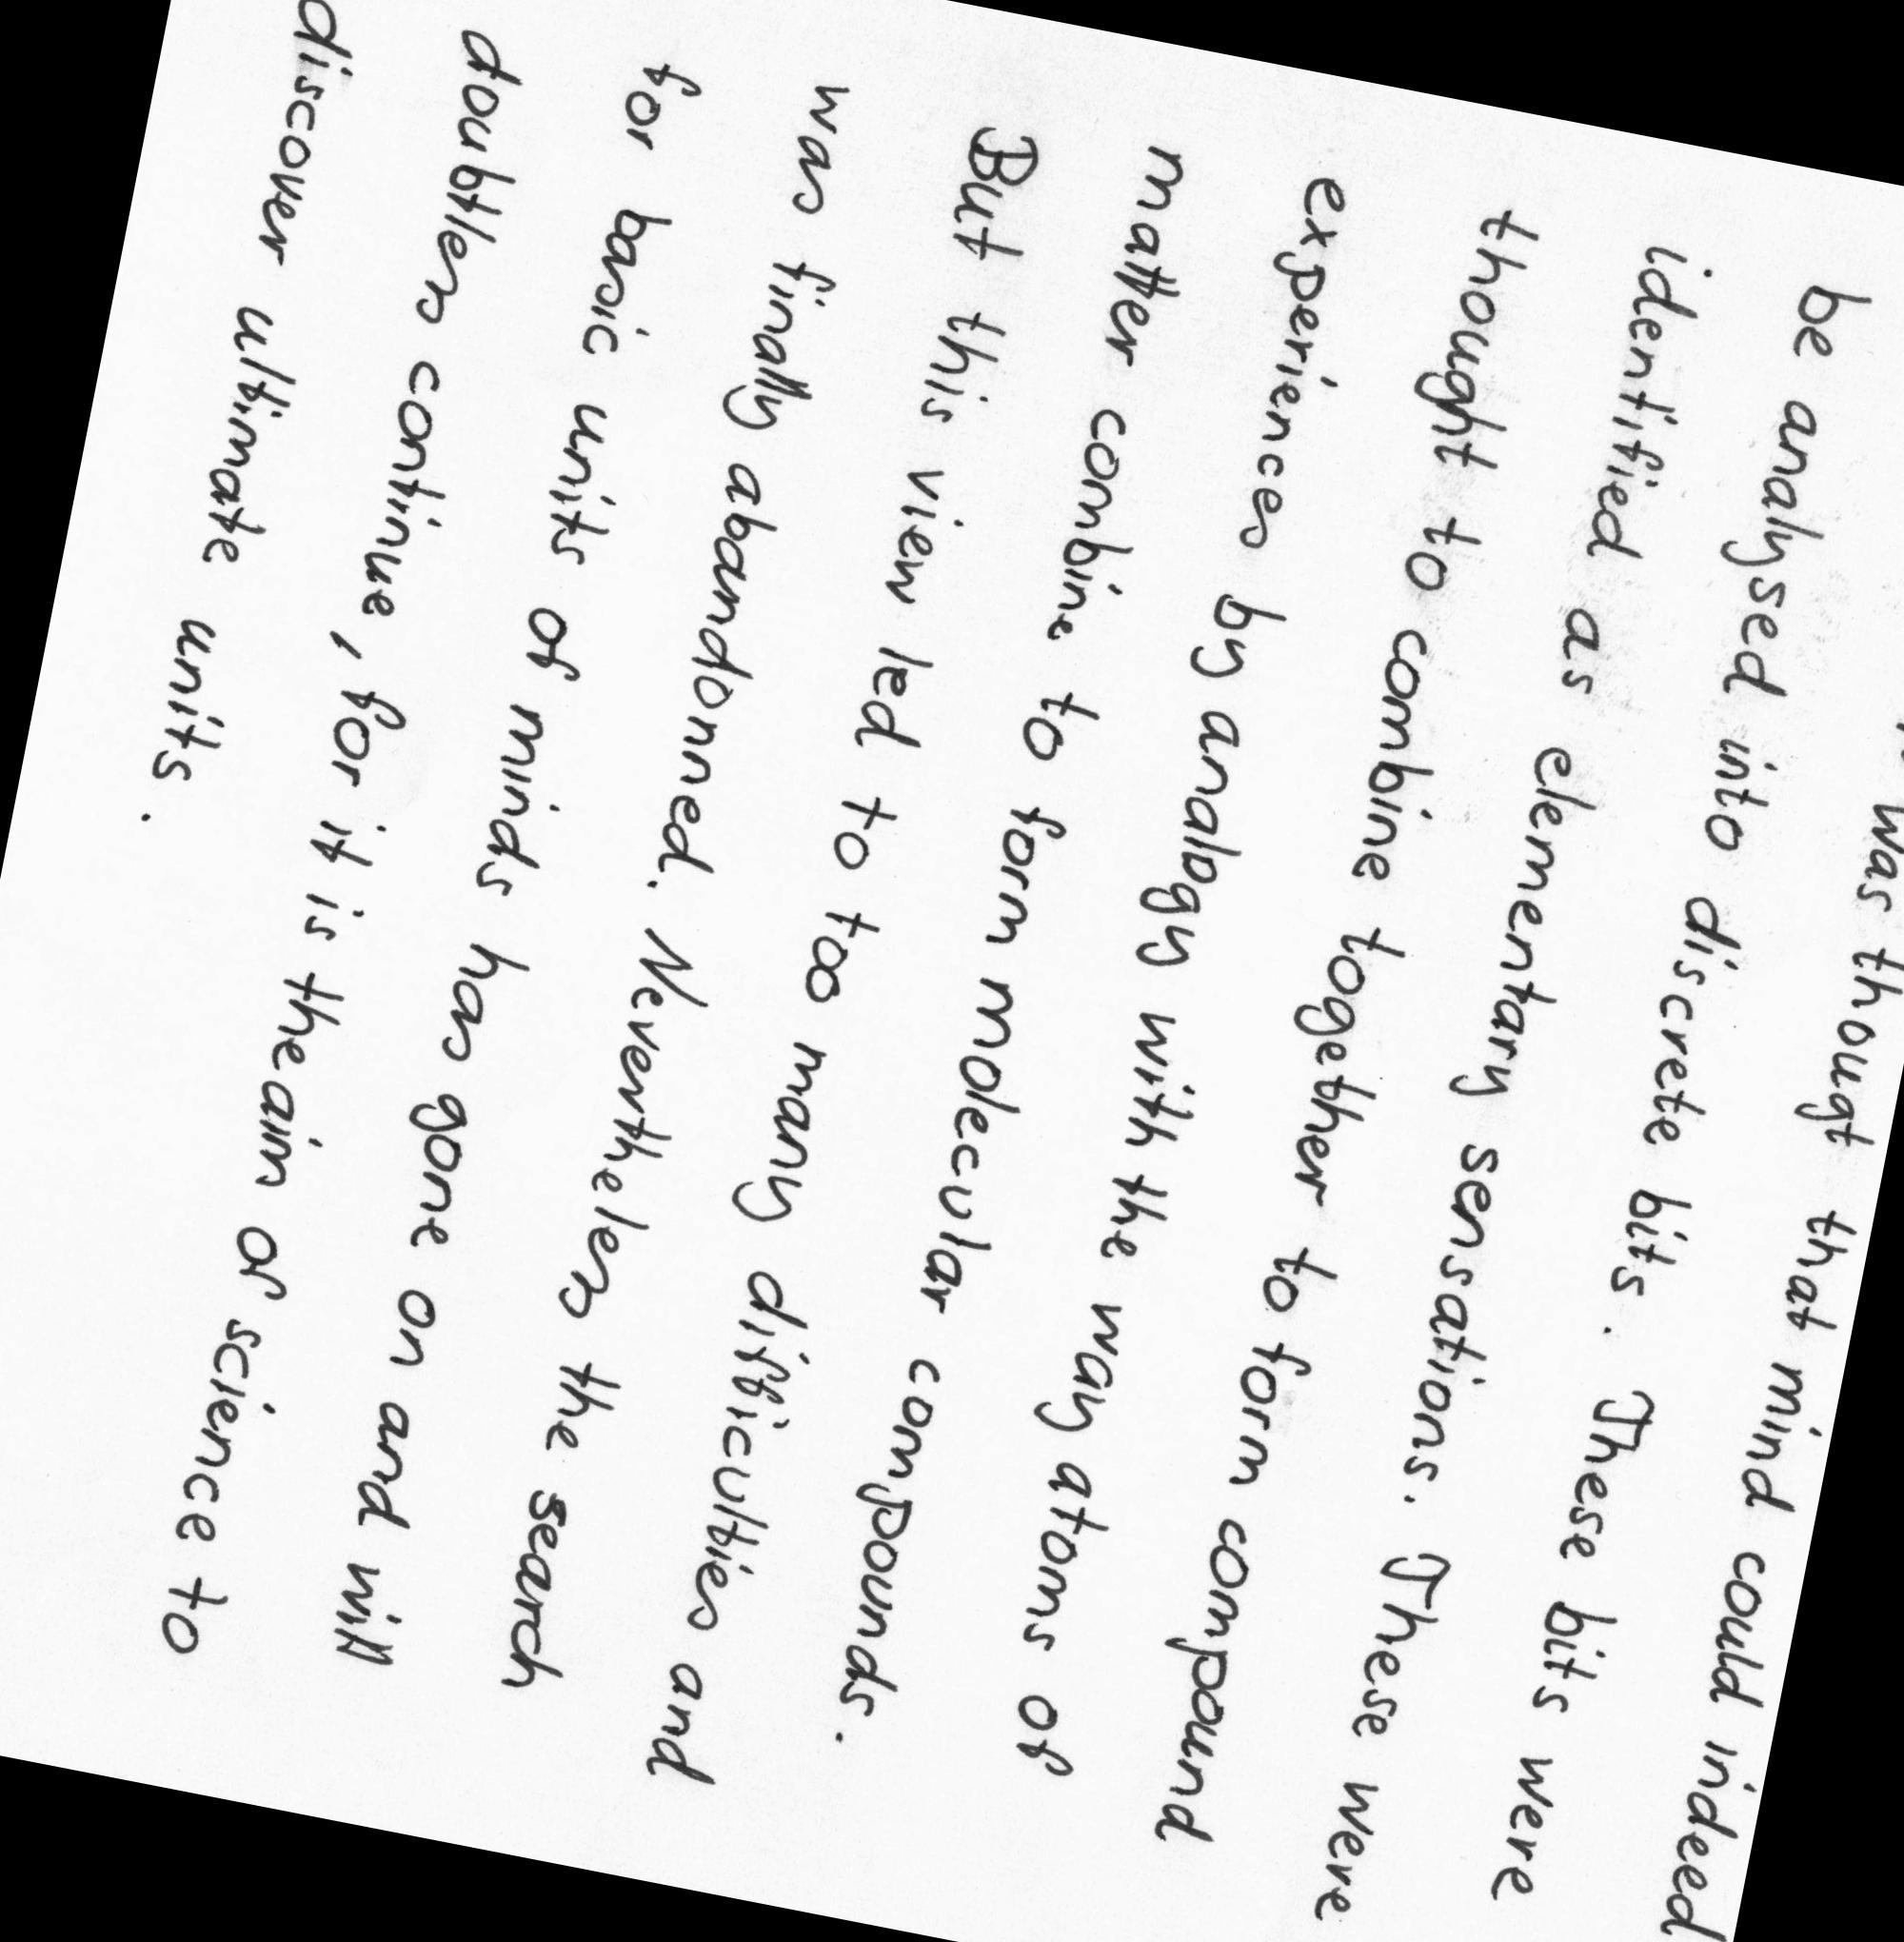 was thougt that mind could indeed
be analysed into discrete bits. These bits were
identified as elementary sensations. These were
thought to combine together to form compound
experiences by analogy with the way atoms of
matter combine to form molecular compounds.
But this view led to too many difficulties and
was finally abandonned. Nevertheless the search
for basic units of minds has gone on and will
doubtless continue, for it is the aim of science to
discover ultimate units.